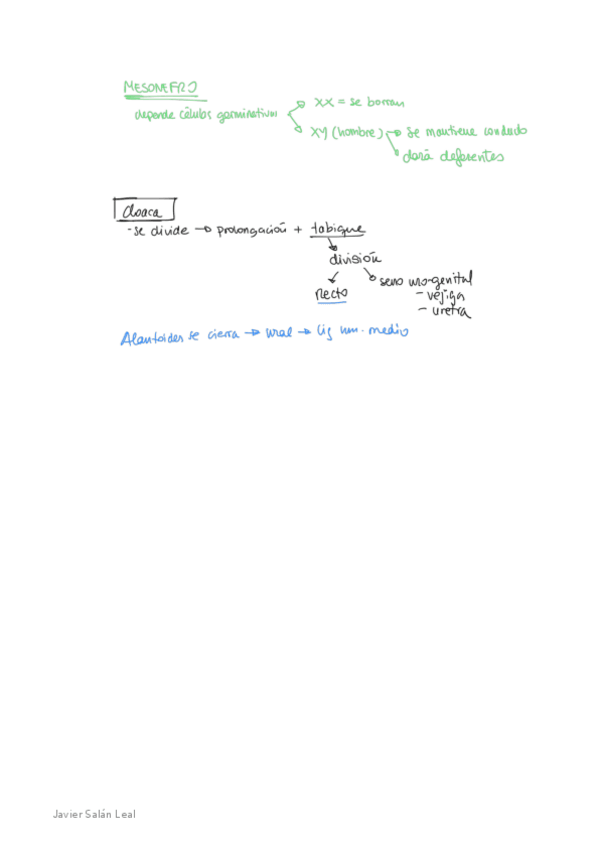 MESONEFRO
depende células germinativas
XX = se borran
XY (hombre) → se mantiene conducto
dará deferentes
Cloaca
- se divide → prolongación + tabique
división
recto
seno urogenital
- vejiga
- uretra
Alantoides se cierra → → lig um. medio
Javier Salán Leal